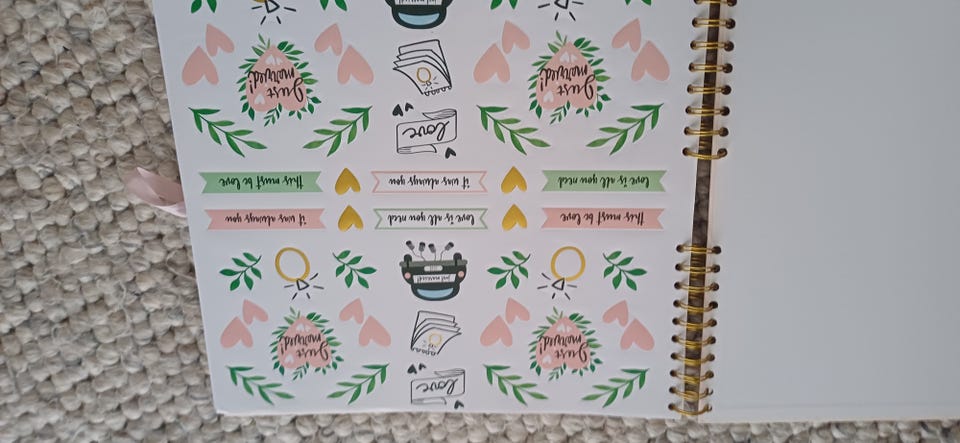 love
Just
married!
Just
married!
just married!
this must be love
love is all you need
it was always you
love is all you need
it was always you
this must be love
love
Just
married!
Just
married!